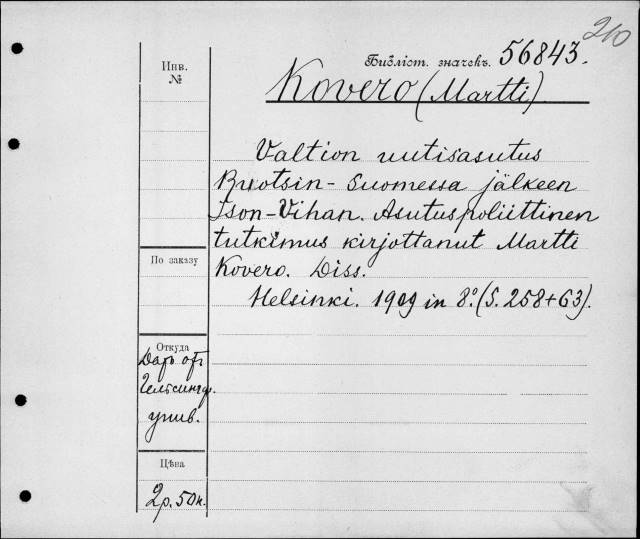 210
Инв.
№
Бібліот. значекъ. 56843.
Kovero (Martti)
Valtion uutisasutus
Ruotsin-Suomessa jälkeen
Ison-Vihan. Asutuspoliittinen
tutkimus kirjottanut Martti
Kovero. Diss.
Helsinki. 1909 in 8º. (S. 258+63).
По заказу
Откуда
Даръ отъ
Гельсингф.
унив.
Цѣна
2р. 50к.